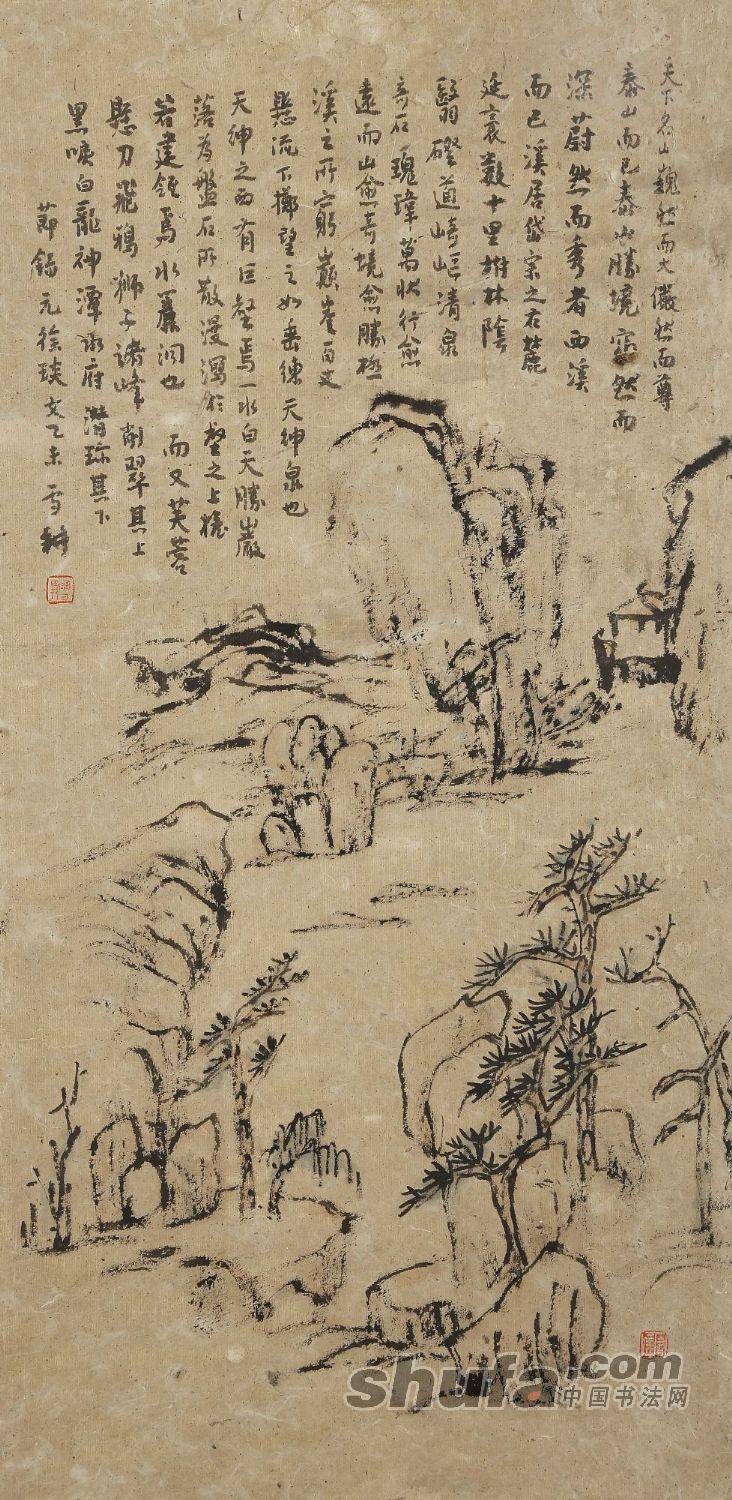 天下名山巍然而大儼然而尊
泰山而已泰山勝境窈然而
深蔚然而秀者西溪
而已溪居岱宗之右麓
延袤數十里樹林陰
翳磴道崎嶇清泉
奇石瑰瑋萬狀行愈
遠而山愈奇境愈勝極
溪之所窮巔崖百丈
懸流下擲望之如垂練天紳泉也
天紳之西有巨壑焉一水自天勝巖
落為盤石所散漫瀉於壑之上栊
若建瓴焉水簾洞也 而又芙蓉
懸刀飛鴉獅子諸峰削翠其上
黑唳白龍神潭水府潛珎其下
節錄元徐琰文乙未雪耕
shufa.com
中国书法网